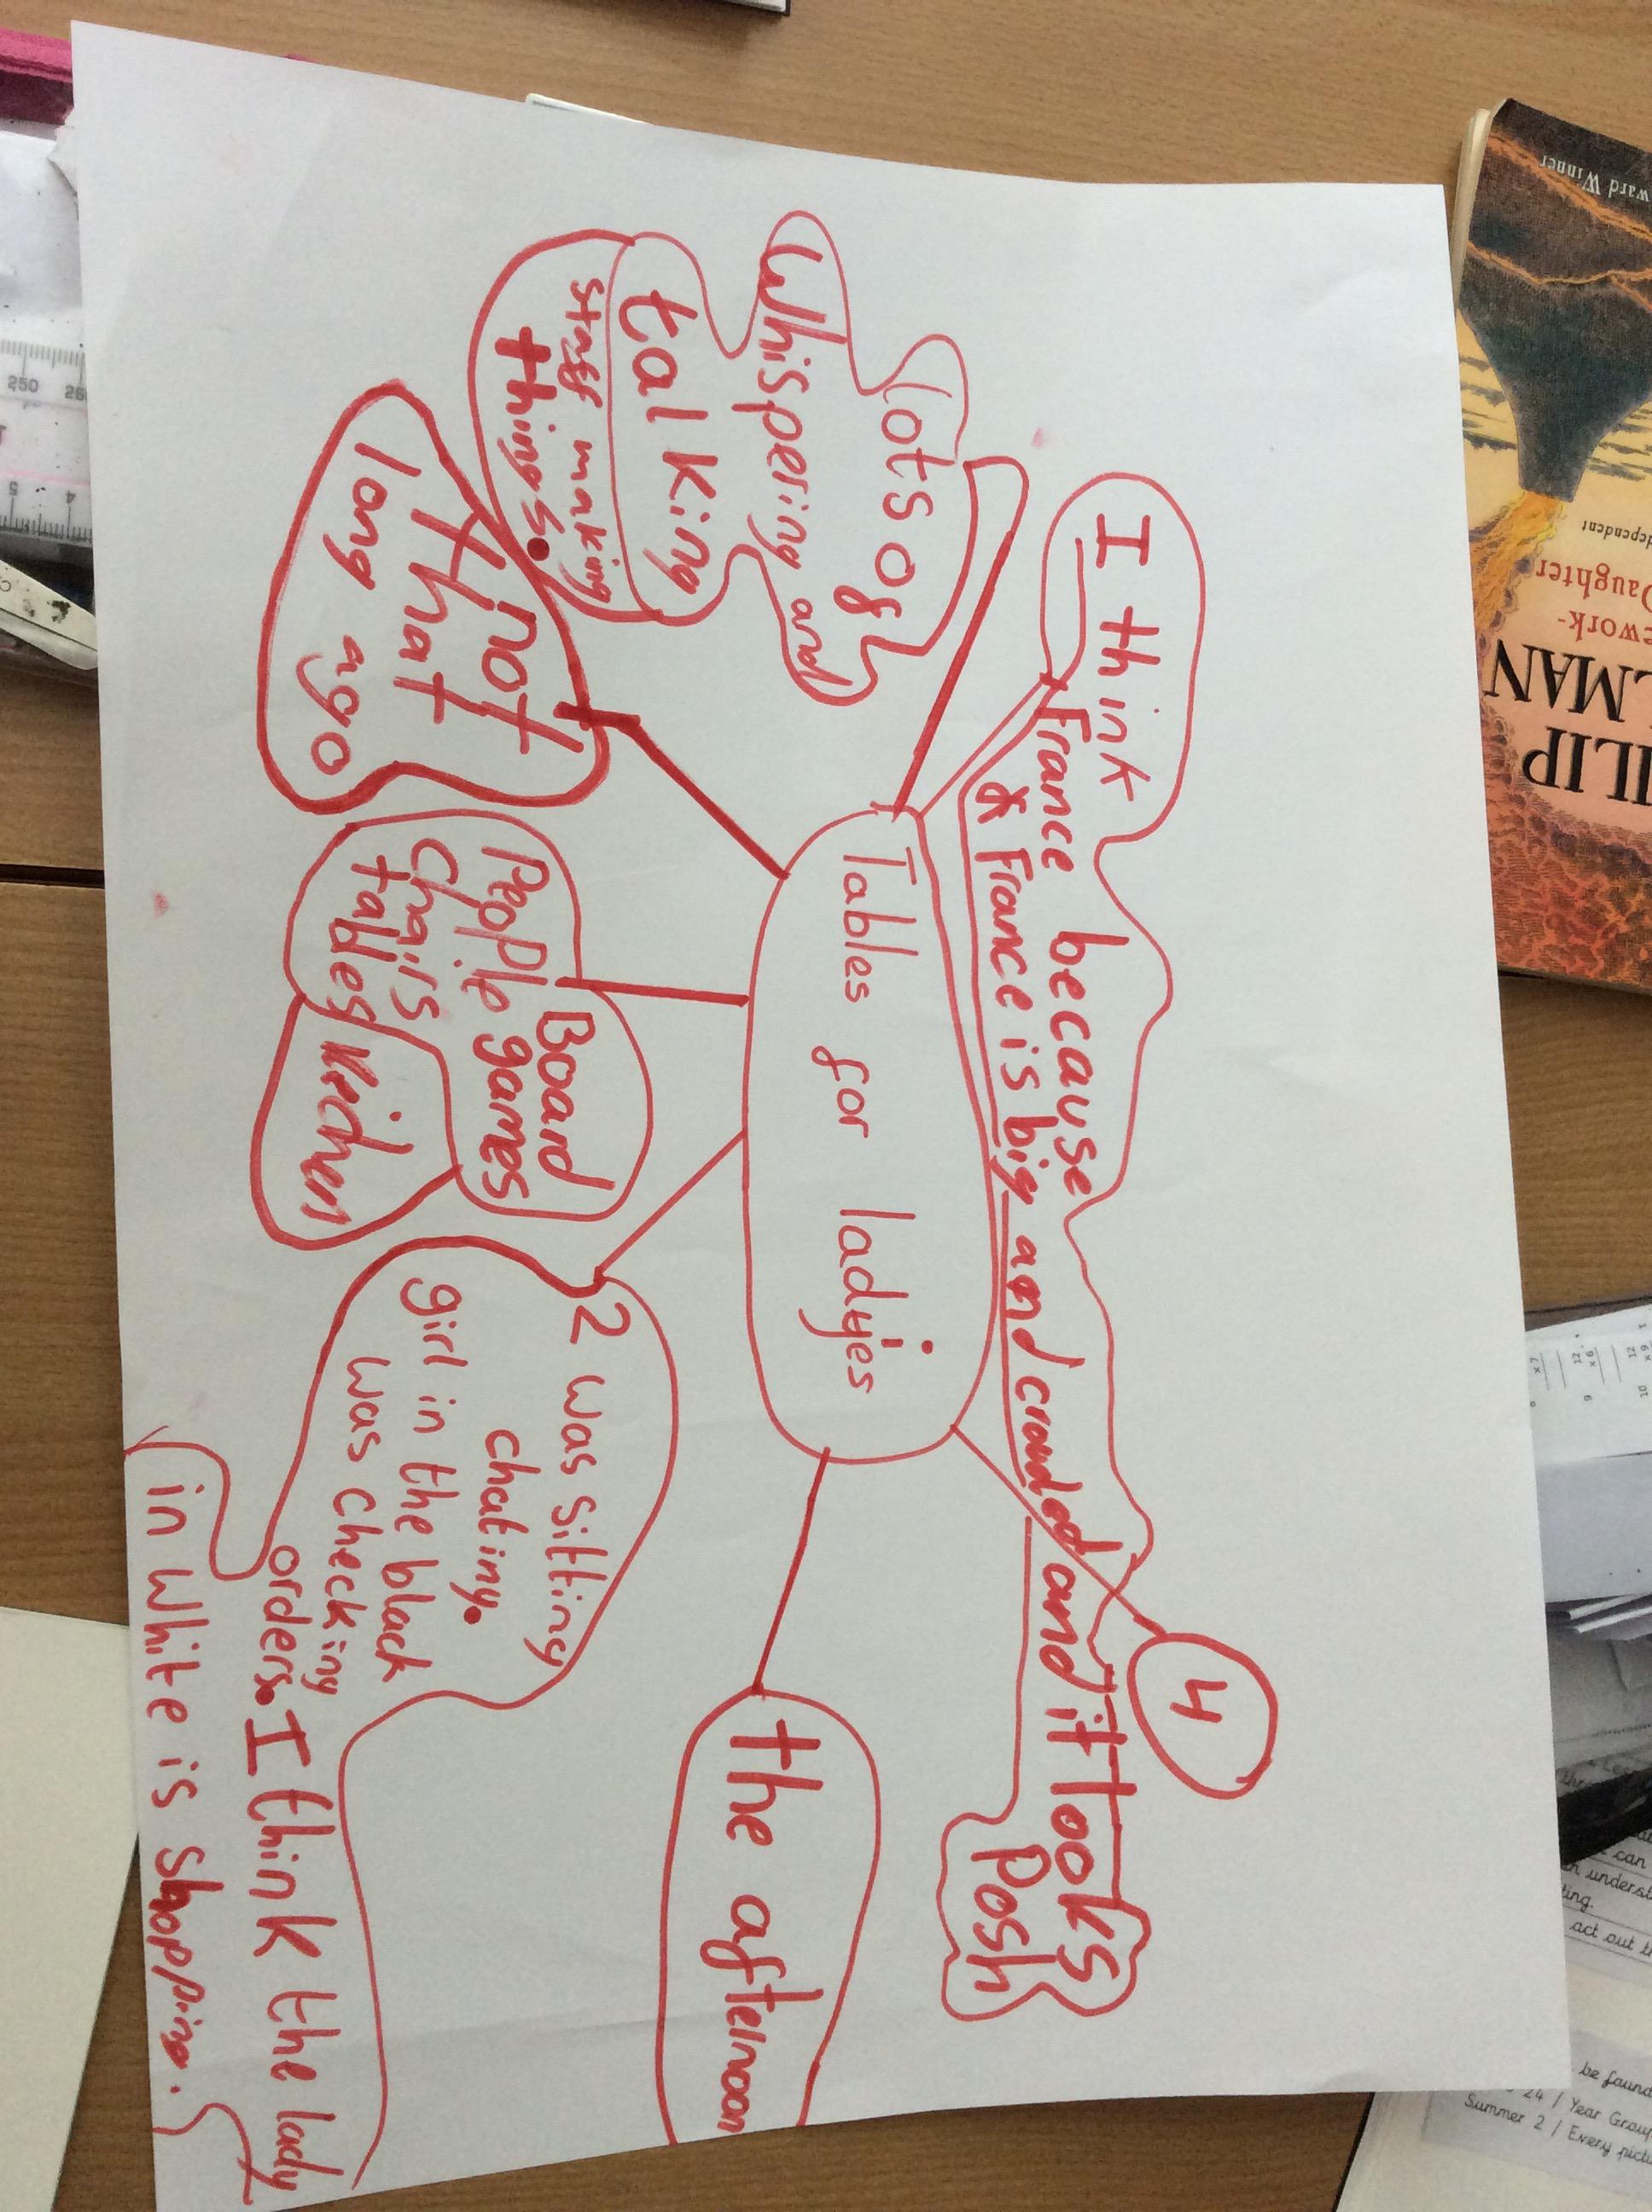 Tables for ladyes
I think
France because
& France is big and crowded and it looks
Posh
4
the afternoon
2 was sitting
chating.
girl in the black
was checking
orders. I think the lady
in white is shopping.
Board
People games
Chairs
tables kichen
not
that
long ago
Lots of
Whispering and
talking
staff making
things.
ward Winner
dependent
ework-
Daughter
ILIP
LMAN
250
5
4
can
underst
ting.
act out th
be found
24 / Year Group
Summer 2 / Every pictu